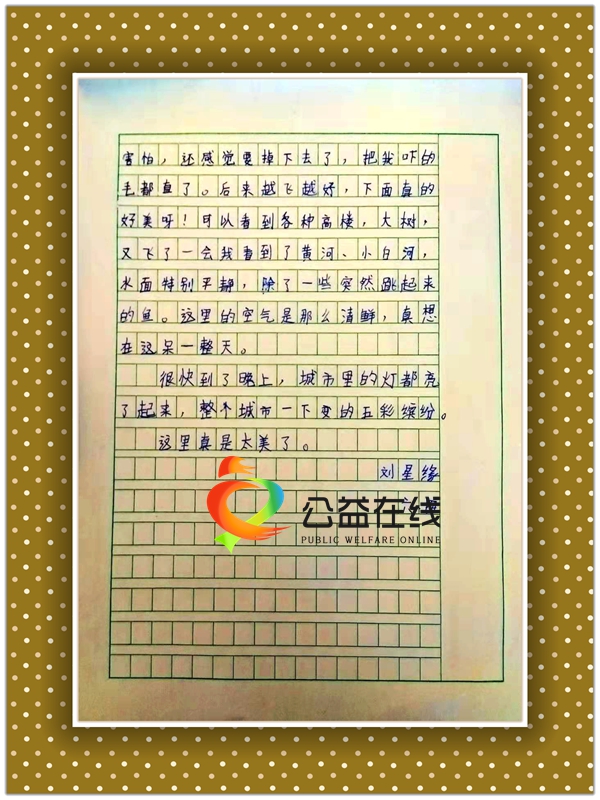 害怕，还感觉要掉下去了，把我吓的
毛都直了。后来越飞越好，下面真的
好美呀！可以看到各种高楼，大树，
又飞了一会我看到了黄河、小白河，
水面特别平静，除了一些突然跳起来
的鱼。这里的空气是那么清鲜，真想
在这呆一整天。
很快到了晚上，城市里的灯都亮
了起来，整个城市一下变的五彩缤纷。
这里真是太美了。
刘星缘
公益在线
PUBLIC WELFARE ONLINE